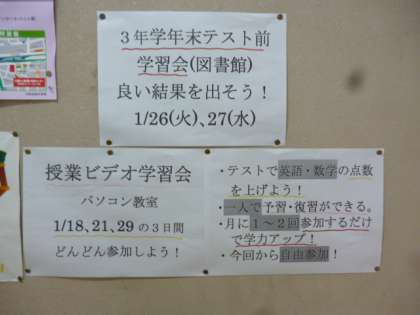 3年学年末テスト前
学習会(図書館)
良い結果を出そう!
1/26(火)、27(水)
授業ビデオ学習会
パソコン教室
1/18,21,29 の3日間
どんどん参加しよう!
・テストで英語・数学の点数
を上げよう!
・一人で予習・復習ができる。
・月に1〜2回参加するだけ
で学力アップ!
・今回から自由参加!